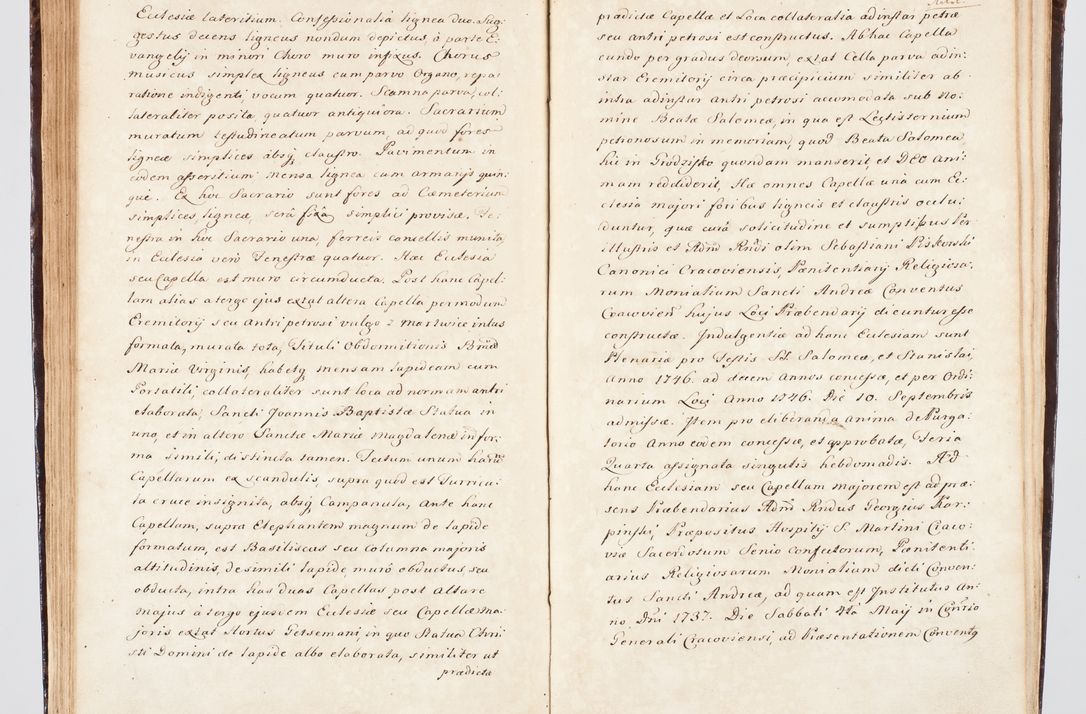 Ecclesiæ lateritium. Confessionalia lignea duo. Sug:
gestus decens ligneus nondum depictus, à parte E:
vangelij in minori Choro muro infixus. Chorus
musicus simplex ligneus cum parvo Organo, repa:
ratione indigenti, vocum quatuor. Scamna parva, col:
lateraliter posita, quatuor antiquiora. Sacrarium
muratum testudineatum parvum, ad quod fores
ligneæ simplices absq, claustro. Pavimentum in
eodem asseritium mensa lignea cum armarijs quin:
que. Ex hoc Sacrario sunt fores ad Cæmeterium
simplices ligneæ, serâ fixâ simplici provisæ. Fe:
nestra in hoc Sacrario una, ferreis cancellis munita,
in Ecclesia verò Fenestræ quatuor. Hæc Ecclesia
seu Capella est muro circumducta. Post hanc Capel:
lam alias a tergo ejus extat altera Capella per modum
Eremitorij seu Antri petrosi vulgo z Martwice intus
formata, murata tota, Tituli Obdormitionis Bmæ
Mariæ Virginis, habetq mensam lapideam cum
Portatili, collateraliter sunt loca ad normam antri
elaborata, Sancti Joannis Baptistæ Statua in
uno, et in altero Sanctæ Mariæ Magdalenæ in for:
ma simili, distincta tamen. Tectum unum harum
Capellarum ex scandulis, supra quod est Turricu:
la cruce insignita, absq Campanula, Ante hanc
Capellam, supra Elephantem magnum de lapide
formatum, est Basiliscus seu Columna majoris
altitudinis, de simili lapide, murô obductus, seu
obducta, intra has duas Capellas post Altare
majus à tergo ejusdem Ecclesiæ seu Capellæ ma:
joris extat Hortus Getsemani, in quo Statua Chri:
sti Domini de lapide albo elaborata, similiter ut
prædicta
prædictæ Capellæ et Loca collateralia ad instar petræ
seu antri petrosi est constructus. Ab hac Capella
eundo per gradus deorsum, extat Cella parva ad in:
star Eremitorij circa præcipicium similiter ab
intra ad instar antri petrosi accomodata sub No:
mine Beatæ Salomeæ, in qua est Lectisternium
petronosum in memoriam, quod Beata Salomea
hic in Grodzisko quondam manserit et DEO Ani:
mam reddiderit. Hæ omnes Capellæ unà cum Ec:
clesia majori foribus ligneis et claustris occlu:
duntur, quæ curâ solicitudine et sumptibus Per
illustris et Adm̃ Rndi olim Sebastiani Piskorski
Canonici Cracoviensis, Pœnitentiarij Religiosa:
rum Monialium Sancti Andreæ Conventus
Cracovien hujus Loci Præbendarij dicuntur esse
constructæ. Indulgentiæ ad hanc Ecclesiam sunt
Plenariæ pro Festis SS. Salomeæ, et Stanislai,
Anno 1746. ad decem Annos concessæ, et per Ordi:
narium Loci Anno 1746. Die 10. Septembris
admissæ. Item pro eliberanda anima de Purga:
torio Anno eodem concessæ, et approbatæ, Feria
Quarta assignata singulis hebdomadis. Ad
hanc Ecclesiam seu Capellam majorem est ad præ:
sens Præbendarius Adm̃ Rndus Georgius Kar:
pinski, Præpositus Hospitij S. Martini Craco:
viæ Sacerdotum Senio confectorum, Pœnitenti:
arius Religiosarum Monialium dicti Conven:
tus Sancti Andreæ, ad quam est Institutus An:
no Dni 1737. Die Sabbati 4tâ Maij in Consrio
Generali Cracoviensi, ad Præsentationem Conventq